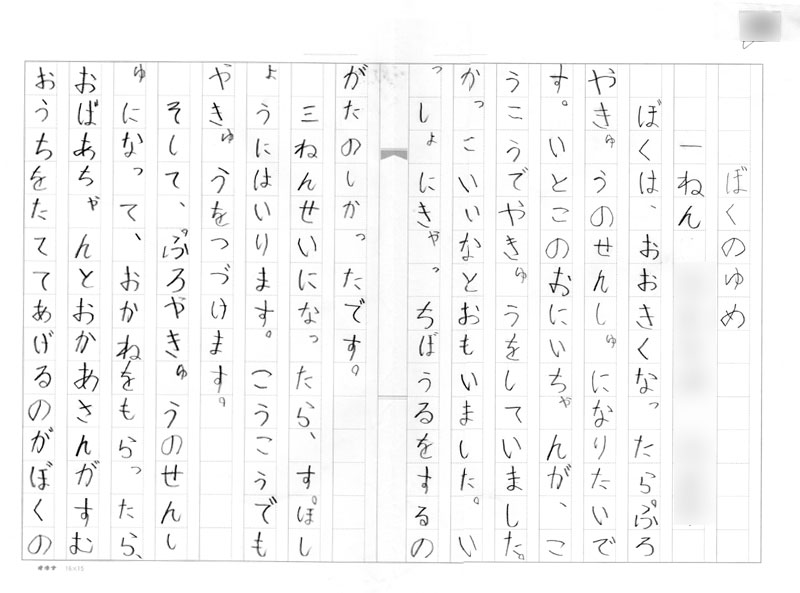 ぼくのゆめ
一ねん
ぼくは、おおきくなったらぷろ
やきゅうのせんしゅになりたいで
す。いとこのおにいちゃんが、こ
うこうでやきゅうをしていました。
かっこいいなとおもいました。い
っしょにきゃっちぼうるをするの
がたのしかったです。
三ねんせいになったら、すぽし
ょうにはいります。こうこうでも
やきゅうをつづけます。
そして、ぷろやきゅうのせんし
ゅになって、おかねをもらったら、
おばあちゃんとおかあさんがすむ
おうちをたててあげるのがぼくの